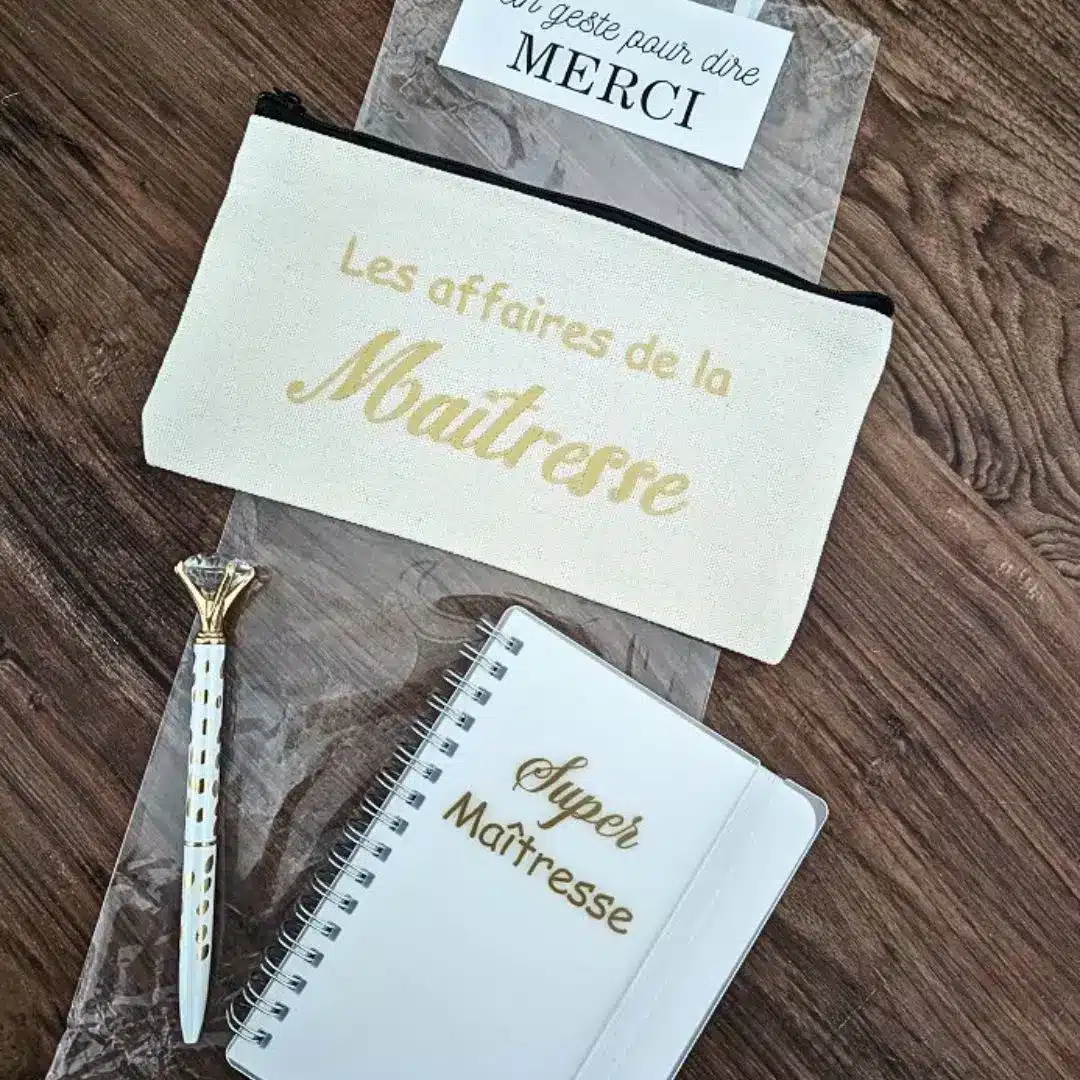 un geste pour dire
MERCI
Les affaires de la
Maîtresse
Super
Maîtresse